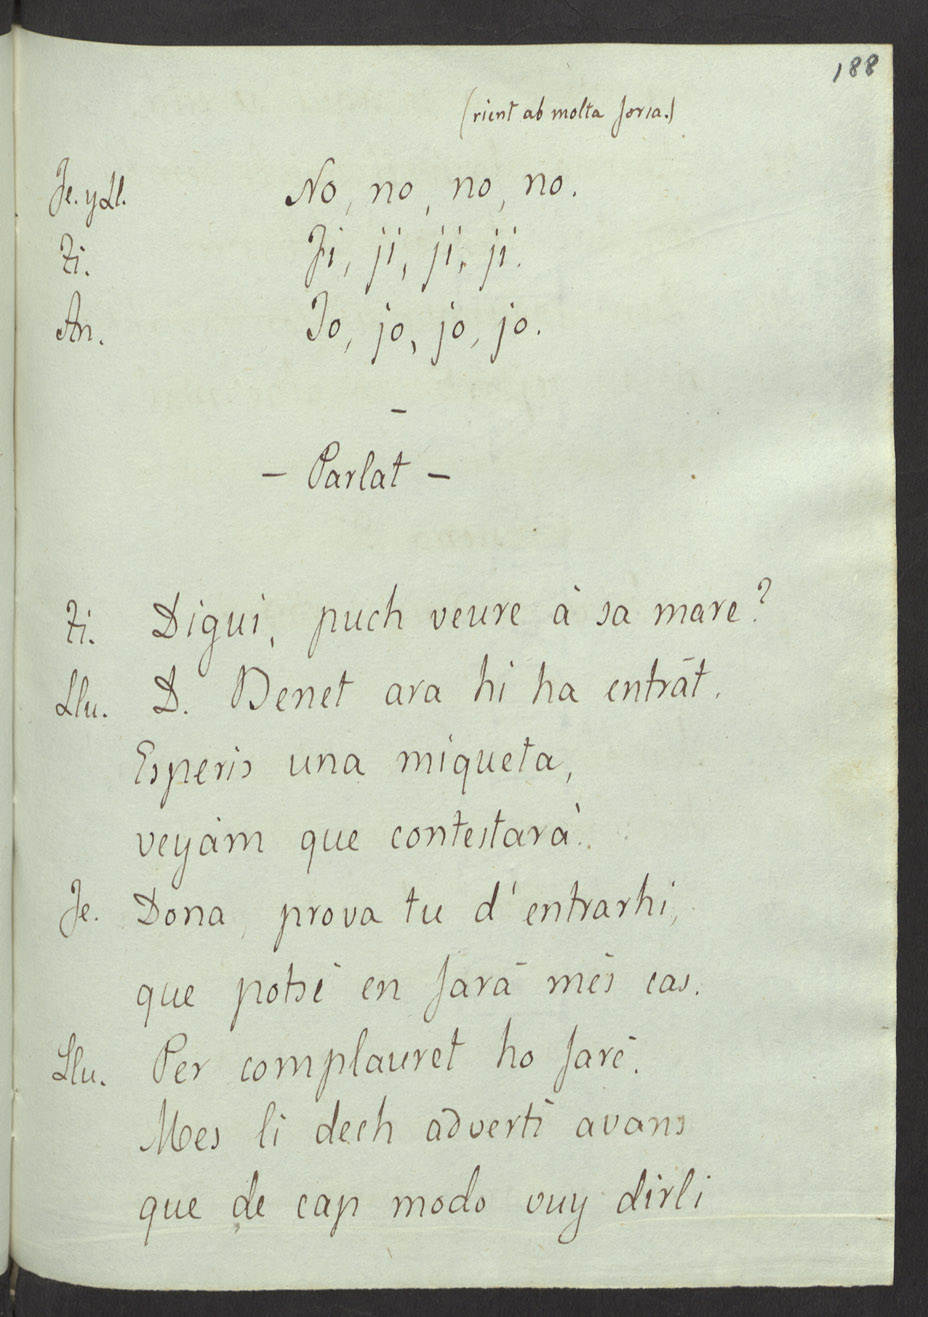 188
(rient ab molta forsa.)
Je. y Ll. No, no, no, no.
Ti. Ji, ji, ji, ji.
An. Jo, jo, jo, jo.
-
- Parlat -
Ti. Digui, puch veure à sa mare?
Llu. D. Benet ara hi ha entrát.
Esperis una miqueta,
veyám que contestará.
Je. Dona, prova tu d'entrarhi,
que potsé en fará més cas.
Llu. Per complauret ho faré.
Mes li dech advertí avans
que de cap modo vuy dirli